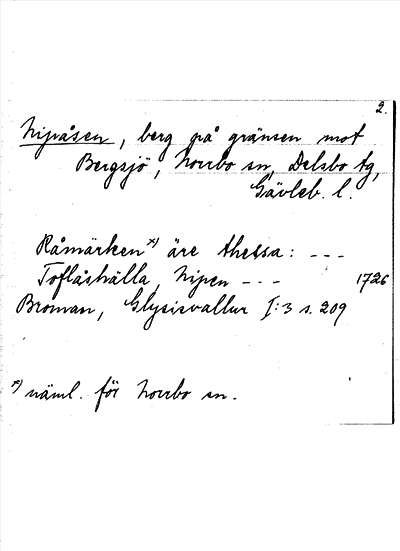 2.
Nipåsen, berg på gränsen mot
Bergsjö, Norrbo sn, Delsbo tg,
Gävleb. l.
Råmärken x) äre thessa: ---
Toflåshälla, Nipen --- 1726
Broman, Glysisvallur I:3 s. 209
x) näml. för Norrbo sn.